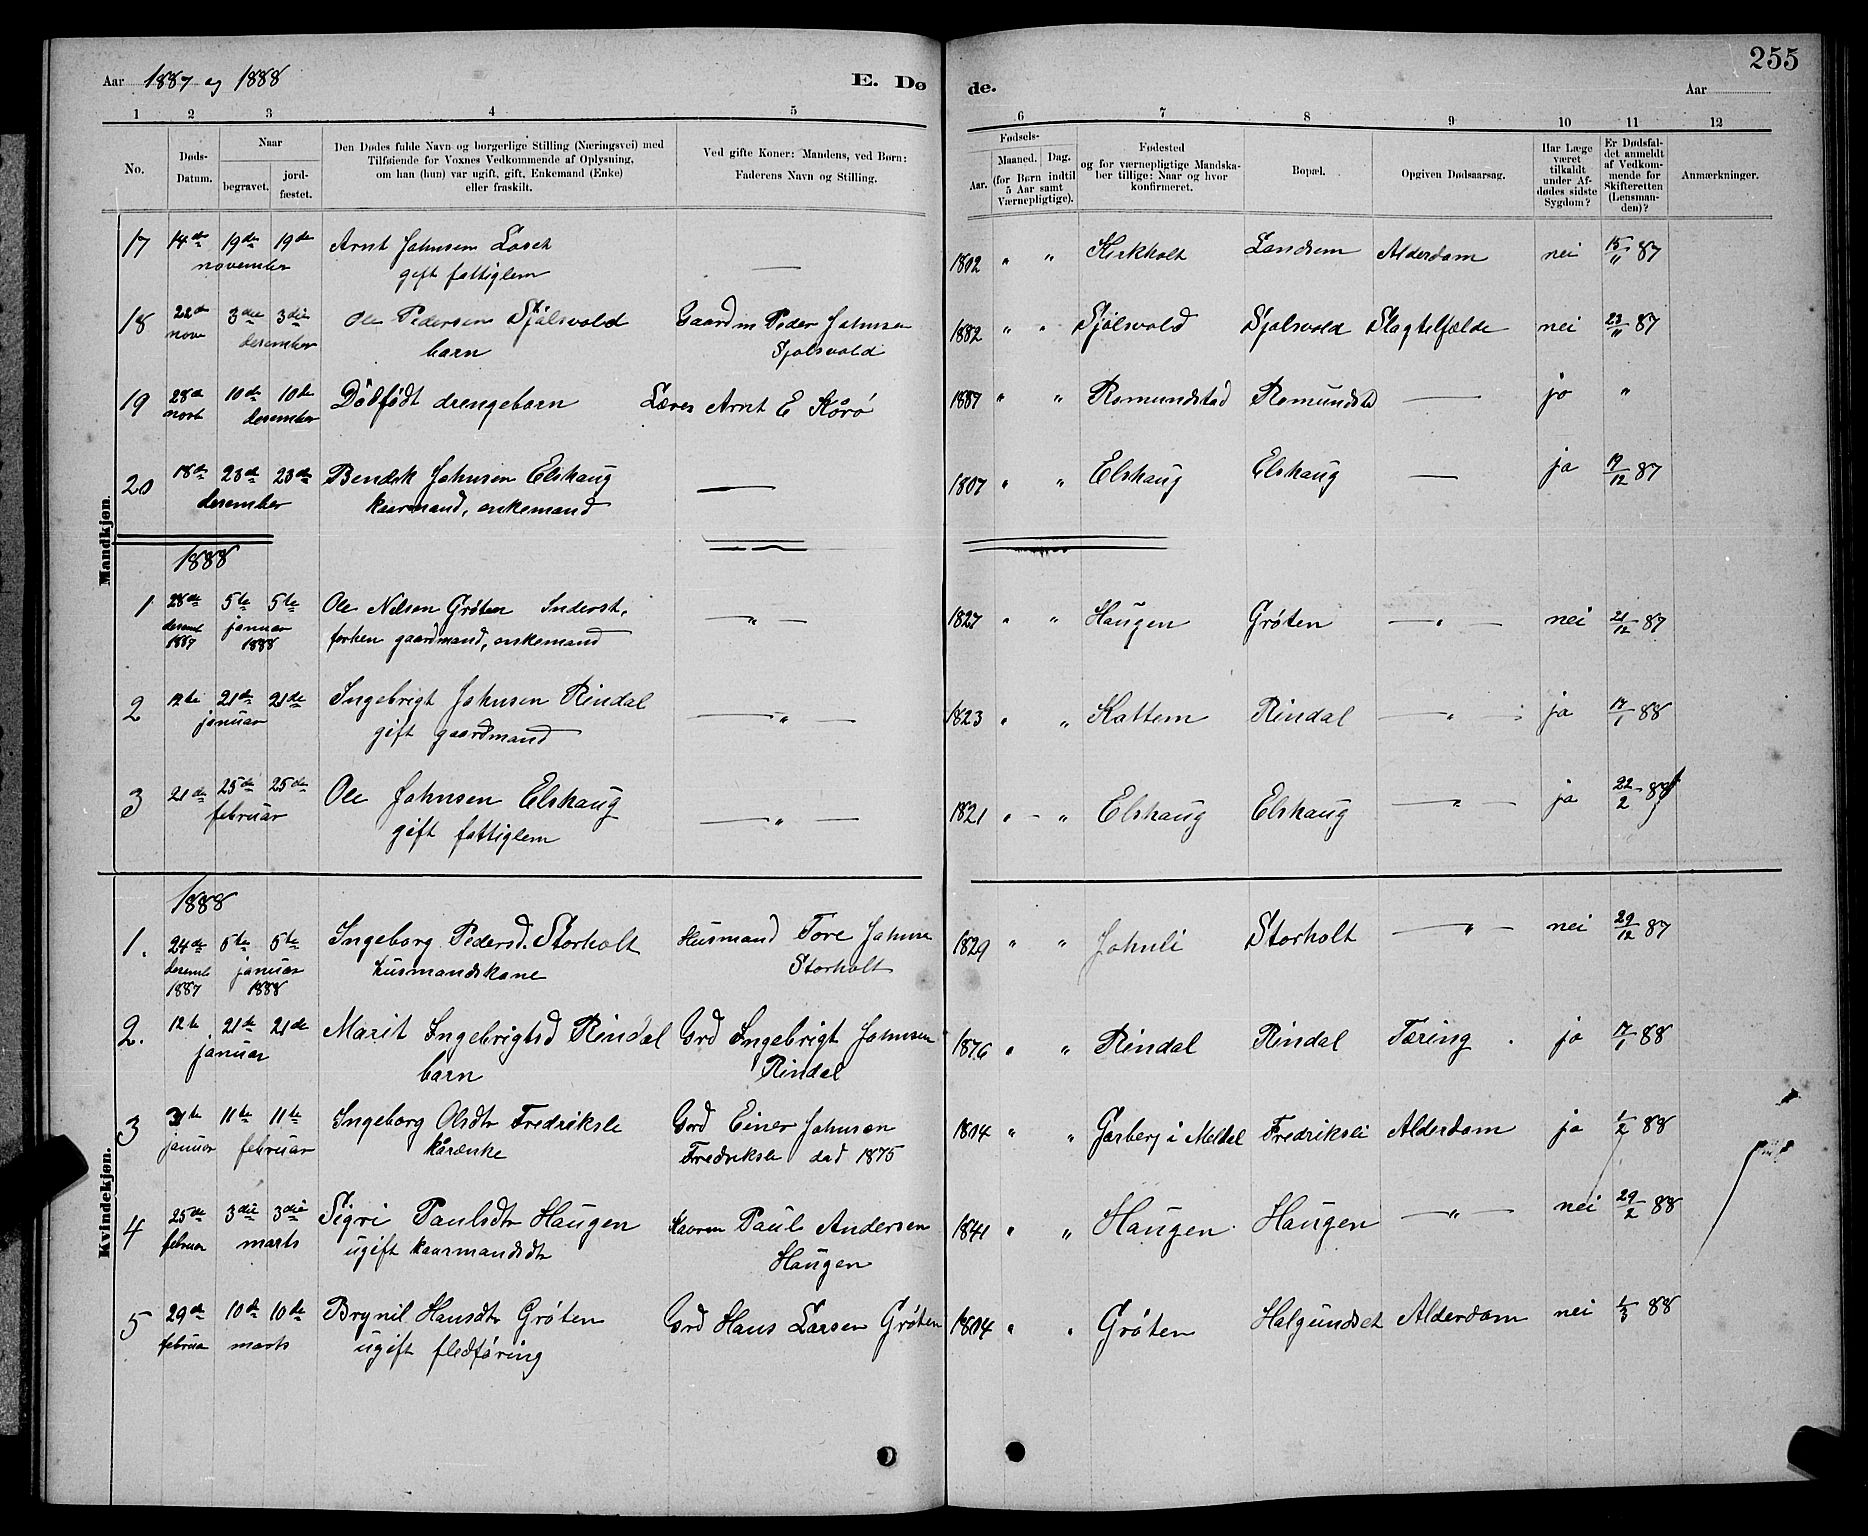 255
Aar 1887 og 1888 E. Døde. Aar
1 2 3 4 5 6 7 8 9 10 11 12
No. Døds-Datum. Naar begravet. jordfæstet. Den Dødes fulde Navn og borgerlige Stilling (Næringsvei) med Tilføiende for Voxnes Vedkommende af Oplysning, om han (hun) var ugift, gift, Enkemand (Enke) eller fraskilt. Ved gifte Koner: Mandens, ved Børn: Faderens Navn og Stilling. Fødsels- Aar. Maaned. Dag. (for Børn indtil 5 Aar samt Værnepligtige). Fødested og for værnepligtige Mandskaber tillige: Naar og hvor konfirmeret. Bopæl. Opgiven Dødsaarsag. Har Læge været tilkaldt under Afdødes sidste Sygdom? Er Dødsfaldet anmeldt af Vedkommende for Skifteretten (Lensmanden)? Anmærkninger.
Mandkjøn.
17 14de 19de 19de Arnt Johnsen Loset — 1802 " " Kirkholt Landsem Alderdom nei 15/11 87
november gift fattiglem
18 22de 3die 3die Ole Pedersen Sjølsvold Gaardm Peder Johnsen 1882 " " Sjølsvold Sjølsvold Slagtilfælde nei 23/11 87
nov desember barn Sjølsvold
19 28de 10de 10de Dödfødt drengebarn Lærer Arnt E Kårø 1887 " " Romundstad Romundsta — jo "
novb desember
20 18de 23de 23de Bendik Johnsen Elshaug — 1807 " " Elshaug Elshaug — ja 19/12 87
desember kaarmand, enkemand
1888
1 28de 5te 5te Ole Nilsen Grøten Inderst, — " — 1827 " " Haugen Grøten — " — nei 21/12 87
desemb januar forhen gaardmand, enkemand
1887 1888
2 12te 21de 21de Ingebrigt Johnsen Rindal — " — 1823 " " Kattem Rindal — " — ja 17/1 88
januar gift gaardmand
3 21de 25de 25de Ole Johnsen Elshaug — " — 1821 " — " Elshaug Elshaug — " — ja 22/2 88
februar gift fattiglem
Kvindekjøn.
1888
1. 24de 5te 5te Ingeborg Pedersd. Storholt Husmand Tore Johnse 1829 " " Johnli Storholt — " — nei 29/12 87
desemb januar husmandskone Storholt
1887 1888
2. 12te 21de 21de Marit Ingebrigtsd Rindal Grd Ingebrigt Johnsen 1876 " " Rindal Rindal Tæring ja 17/1 88
januar barn Rindal
3 31te 11te 11te Ingeborg Olsdtr Fredriksli Grd Einer Johnsen 1804 " " Garberg i Meldal Fredriksli Alderdom ja 1/2 88
januar februar kårenke Fredriksli død 1875
4 25de 3die 3die Sigri Paulsdtr Haugen Kaarm Paul Andersen 1841 " " Haugen Haugen — " — nei 29/2 88
februar marts ugift kaarmandsdtr Haugen
5 29de 10de 10de Brynil Hansdtr Grøten Grd Hans Larsen Grøten 1804 " " Grøten Halgundset Alderdom nei 1/3 88
februar marts ugift fledføring